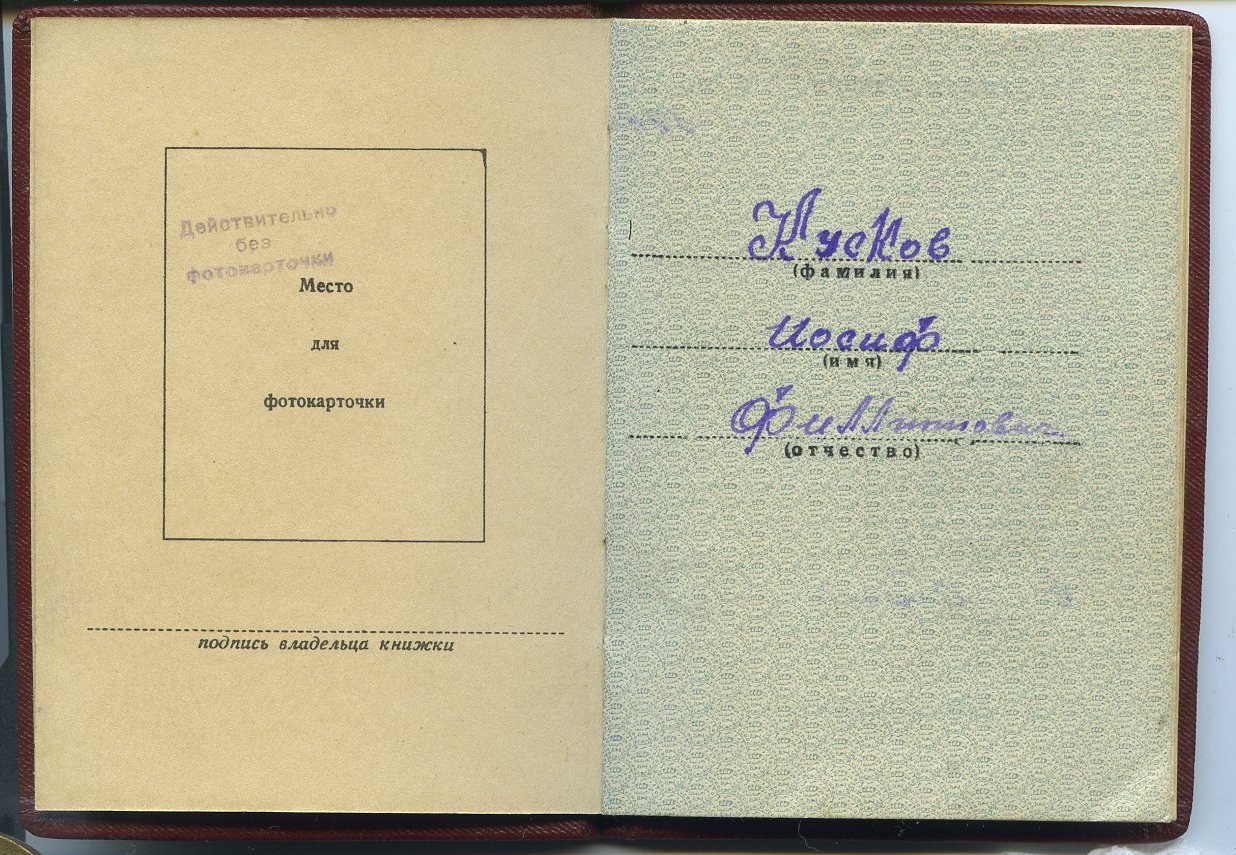 Действительно
без
фотокарточки
Место
для
фотокарточки
подпись владельца книжки
Кусков
(фамилия)
Иосиф
(имя)
Филлипович
(отчество)